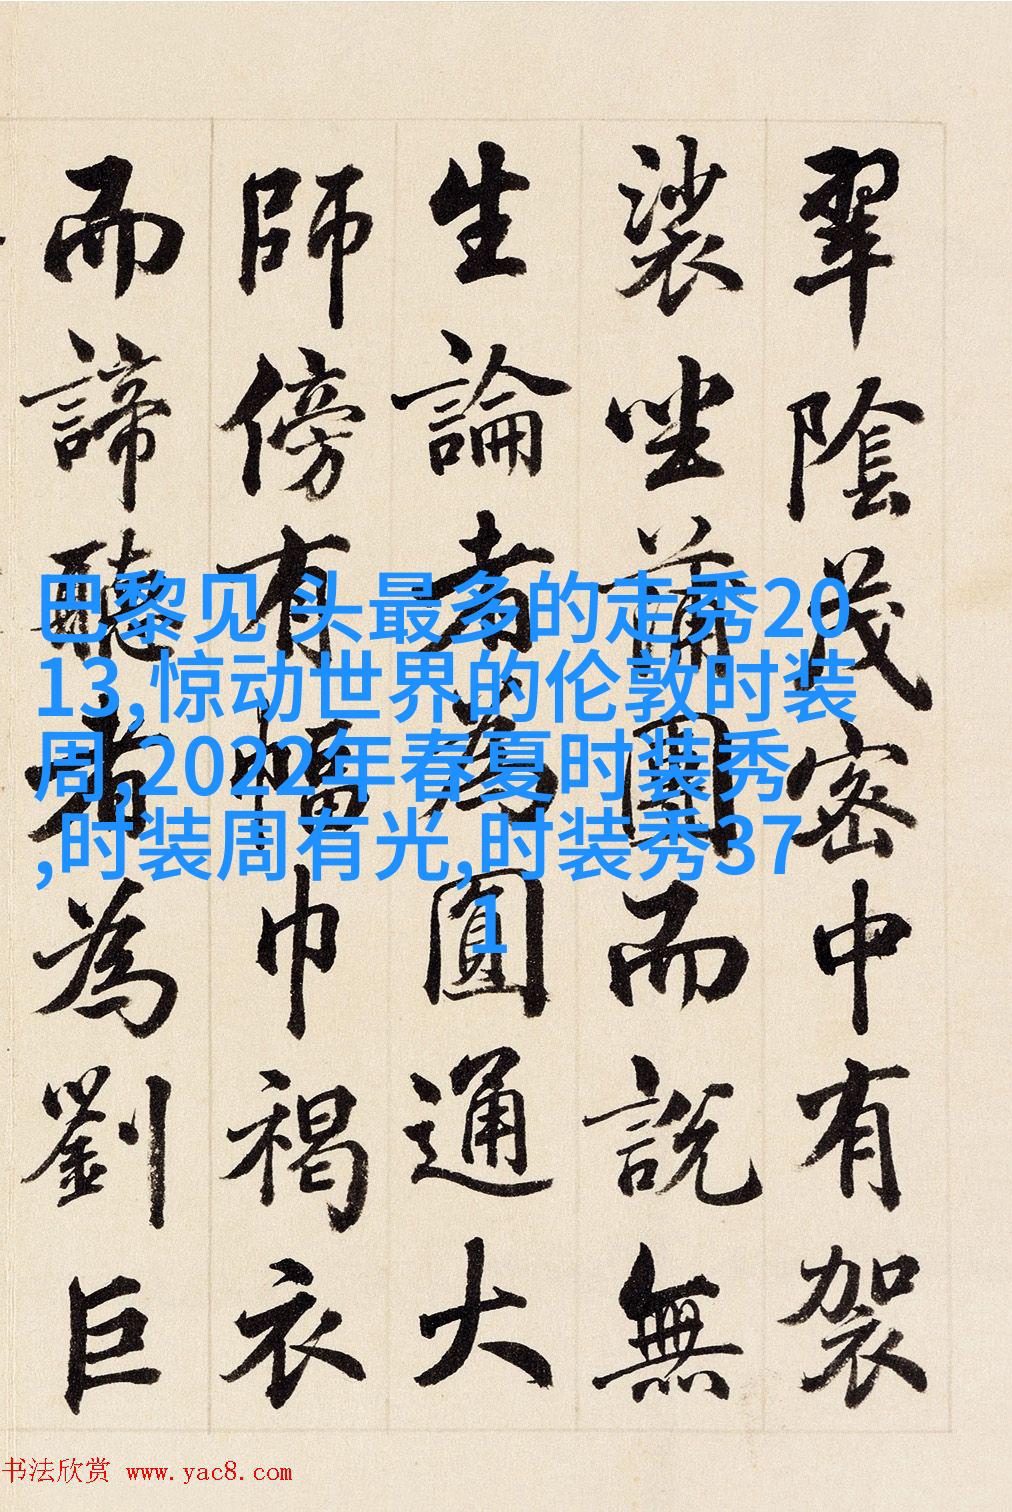 翠陰茂密中有袈
裟坐蒲團而說無
生論者為圓通大
師傍有幅巾褐衣
而諦聽者為劉巨
巴黎见 头最多的走秀20
13,惊动世界的伦敦时装
周,2022年春夏时装秀
,时装周有光,时装秀37
1
书法欣赏 www.yac8.com